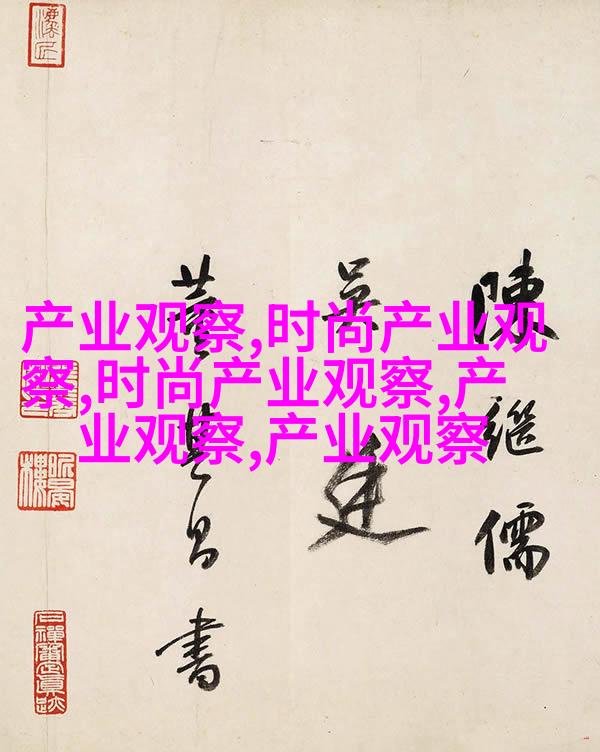 产业观察,时尚产业观
察,时尚产业观察,产
业观察,产业观察
陳繼儒
吳廷
董其昌書